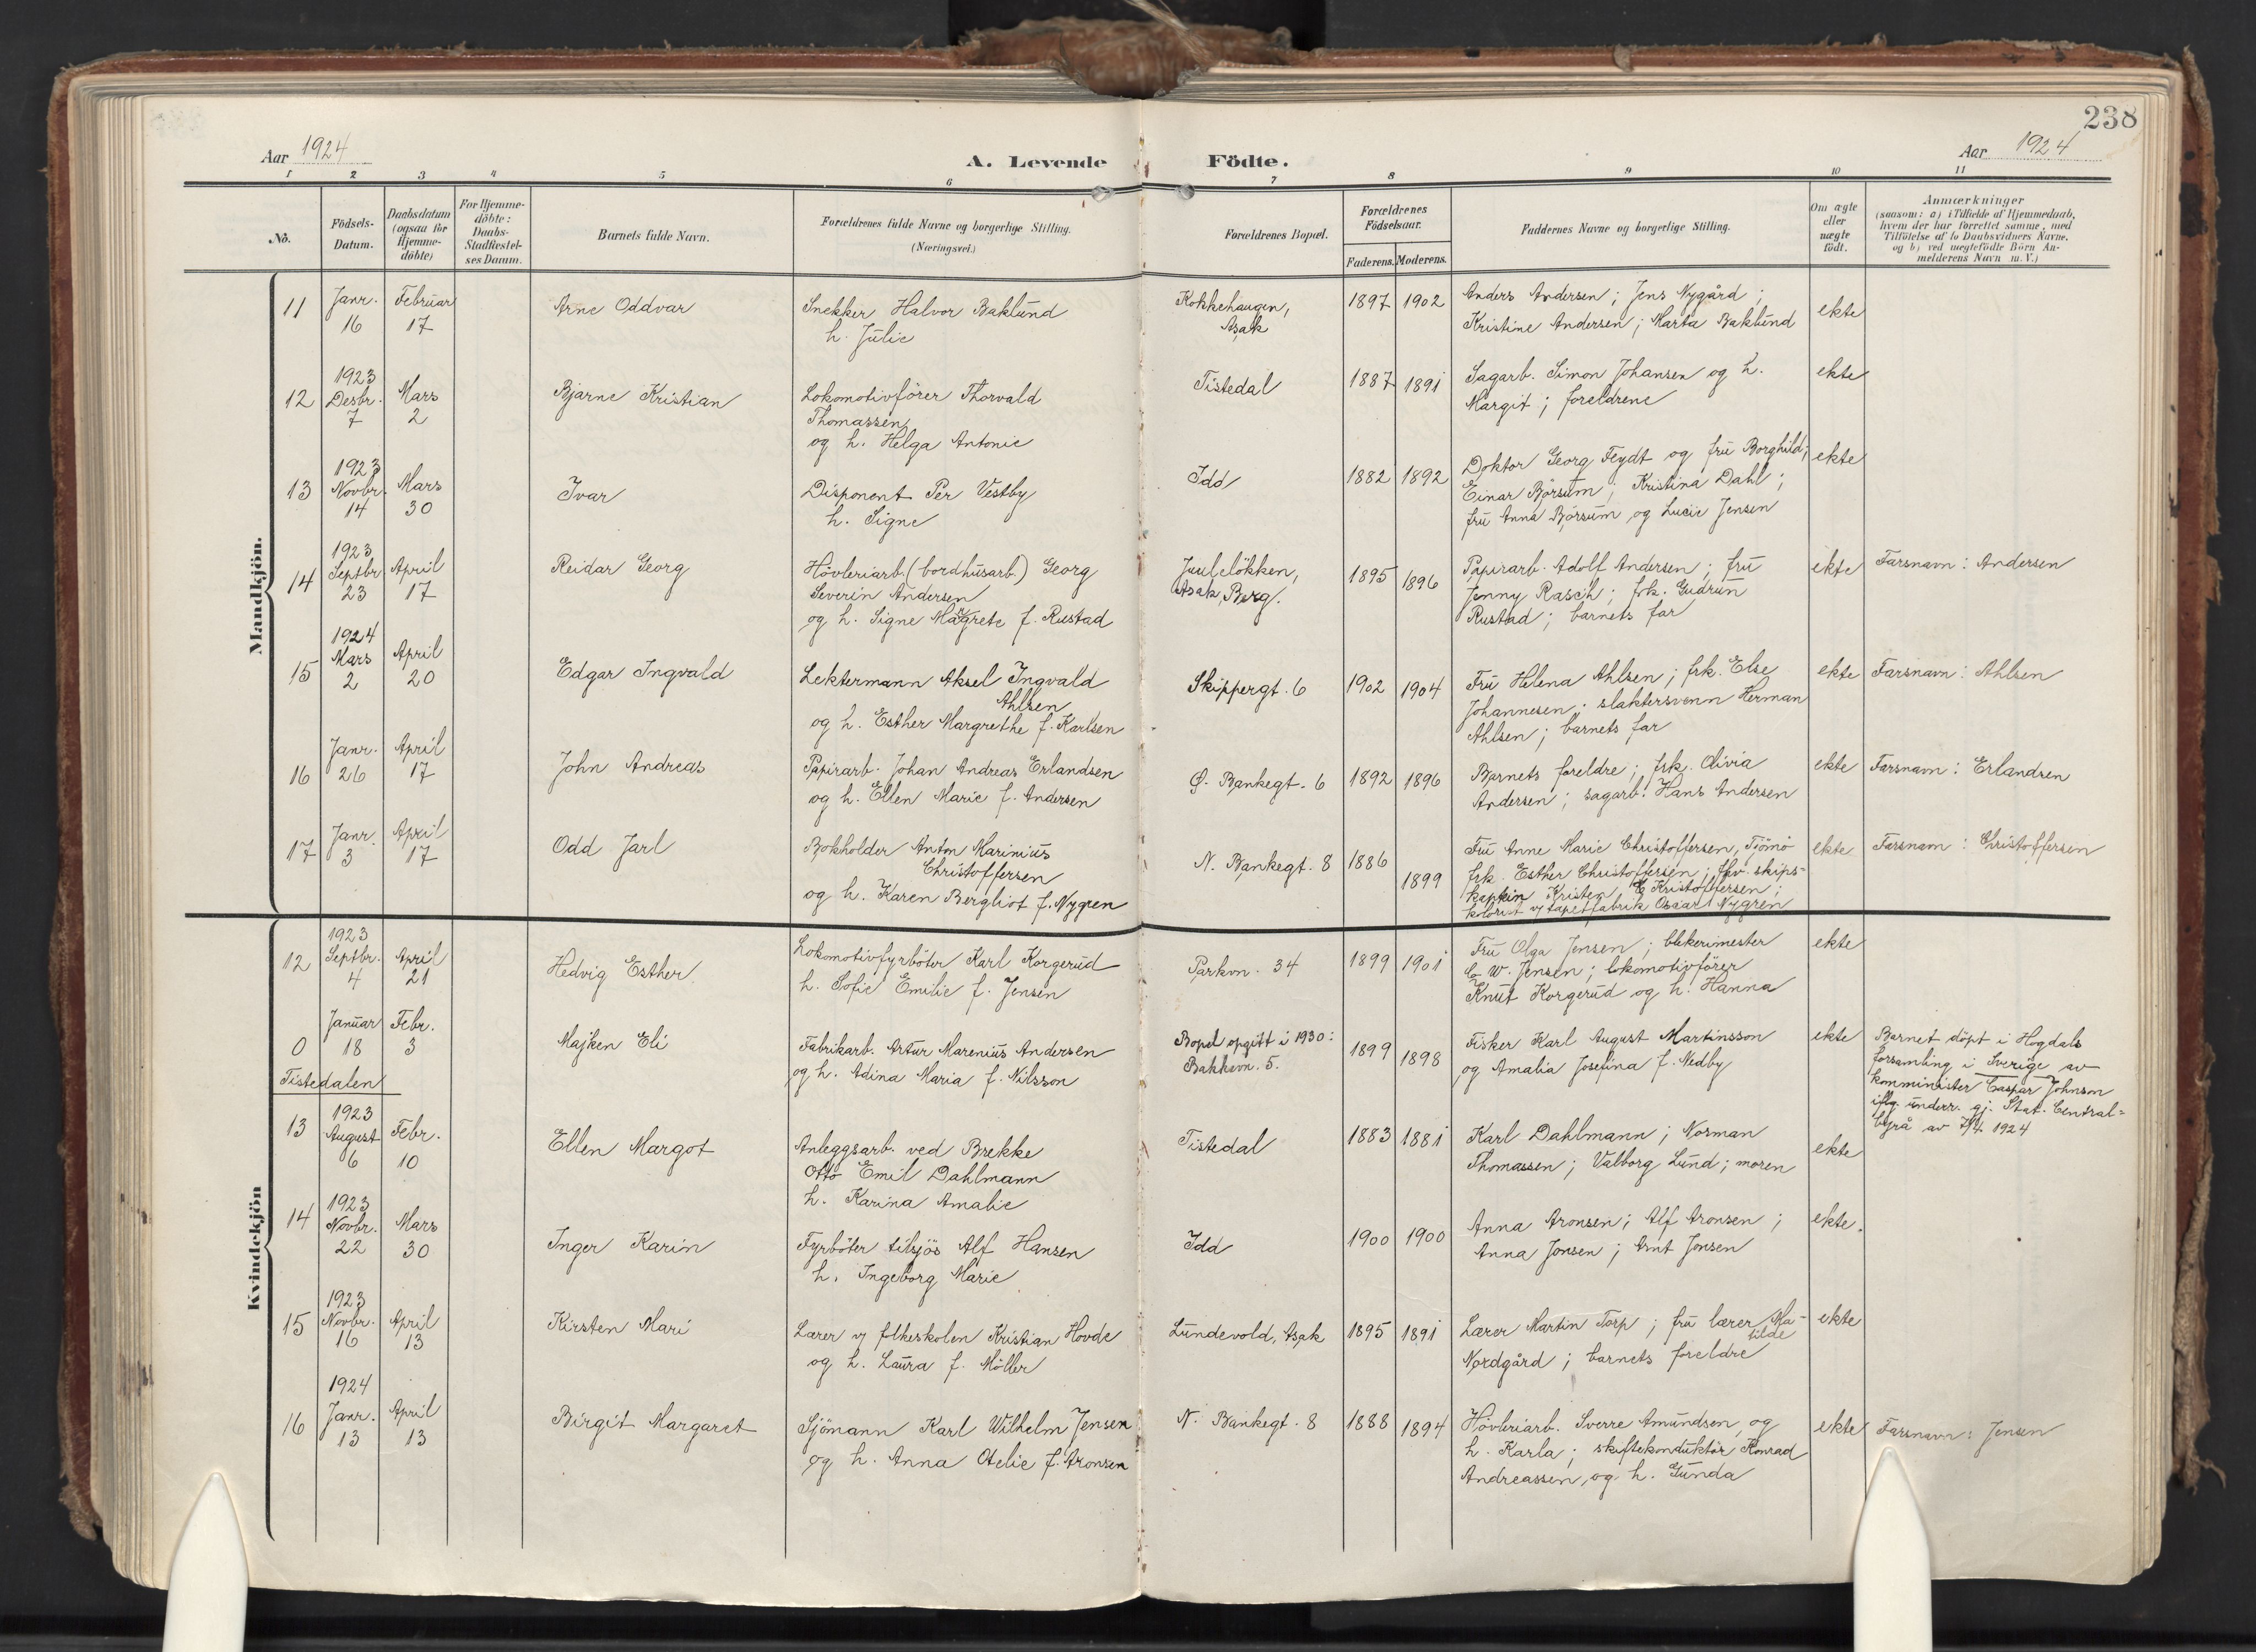 238
Aar 1924
A. Levende Födte.
Aar 1924
1 2 3 4 5 6 7 8 9 10 11
No.
Födsels-
Datum.
Daabsdatum
(ogsaa for
Hjemme-
döbte)
For Hjemme-
döbte:
Daabs-
Stadfæstel-
ses Datum.
Barnets fulde Navn.
Forældrenes fulde Navne og borgerlige Stilling.
(Næringsvei.)
Forældrenes Bopæl.
Forældrenes
Födselsaar.
Faderens. Moderens.
Faddernes Navne og borgerlige Stilling.
Om ægte
eller
uægte
födt.
Anmærkninger
(saasom: a) i Tilfælde af Hjemmedaab,
hvem der har forrettet samme, med
Tilföielse af to Daabsvidners Navne,
og b) ved uægtefödte Börn An-
melderens Navn m. V.)
Mandkjön.
11
Janr.
16
Februar
17
Arne Oddvar
Snekker Halvor Baklund
h. Julie
Kokkehaugen,
Asak
1897 1902
Anders Andersen; Jens Nygård;
Kristine Andersen; Marta Baklund
ekte
12
1923
Desbr.
7
Mars
2
Bjarne Kristian
Lokomotivförer Thorvald
Thomassen
og h. Helga Antonie
Tistedal
1887 1891
Sagarb. Simon Johansen og h.
Margit; foreldrene
ekte
13
1923
Novbr.
14
Mars
30
Ivar
Disponent Per Vestby
h. Signe
Idd
1882 1892
Doktor Georg Feydt og fru Borghild;
Einar Börsum; Kristina Dahl;
fru Anna Börsum og Lucie Jensen
ekte
14
1923
Septbr
23
April
17
Reidar Georg
Hövleriarb. (bordhusarb.) Georg
Severin Andersen
og h. Signe Magrete f. Rustad
Juulelökken,
Asak, Berg.
1895 1896
Papirarb. Adolf Andersen; fru
Jenny Rasch; frk. Gudrun
Rustad; barnets far
ekte
Farsnavn: Andersen
15
1924
Mars
2
April
20
Edgar Ingvald
Lektermann Aksel Ingvald
Ahlsen
og h. Esther Margrethe f. Karlsen
Skippergt. 6
1902 1904
Fru Helena Ahlsen; frk. Else
Johannesen; slaktersvenn Herman
Ahlsen; barnets far
ekte
Farsnavn: Ahlsen
16
Janr.
26
April
17
John Andreas
Papirarb. Johan Andreas Erlandsen
og h. Ellen Marie f. Andersen
Ø. Bankegt. 6
1892 1896
Barnets foreldre; frk. Olivia
Andersen; sagarb. Hans Andersen
ekte
Farsnavn: Erlandsen
17
Janr.
3
April
17
Odd Jarl
Bokholder Anton Marinius
Christoffersen
og h. Karen Bergliot f. Nygren
N. Bankegt. 8
1886 1899
Fru Anne Marie Christoffersen, Tjömö
frk. Esther Christoffersen; fhv. skips-
kaptein Kristen Kristoffersen;
kolorist v/ tapetfabrik Oscar Nygren
ekte
Farsnavn: Christoffersen
Kvindekjön
12
1923
Septbr.
4
April
21
Hedvig Esther
Lokomotivfyrböter Karl Korgerud
h. Sofie Emilie f. Jensen
Parkvn. 34
1899 1901
Fru Olga Jensen; blekerimester
C. W. Jensen; lokomotivförer
Knut Korgerud og h. Hanna
ekte
0
Januar
18
Febr.
3
Majken Eli
Fabrikarb. Artur Marenius Andersen
og h. Adina Maria f. Nilsson
Bopel opgitt i 1930:
Bakkevn. 5.
1899 1898
Fisker Karl August Martinsson
og Amalia Josefina f. Nedby
ekte
Barnet döpt i Hogdals
församling i Sverige av
komminister Caspar Johnson
iflg. underr. gj. Stat. Central-
byrå av 7/4 1924
Tistedalen
13
1923
August
6
Febr.
10
Ellen Margot
Anleggsarb. ved Brekke
Otto Emil Dahlmann
h. Karina Amalie
Tistedal
1883 1881
Karl Dahlmann; Norman
Thomassen; Valborg Lund; moren
ekte
14
1923
Novbr.
22
Mars
30
Inger Karin
Fyrböter tilsjös Alf Hansen
h. Ingeborg Marie
Idd
1900 1900
Anna Aronsen; Alf Aronsen;
Anna Jonsen; Arnt Jonsen
ekte.
15
1923
Novbr.
16
April
13
Kirsten Mari
Lærer v/ folkeskolen Kristian Hovde
og h. Laura f. Möller
Lundevold, Asak
1895 1891
Lærer Martin Torp; fru lærer Ma-
tilde
Nordgård; barnets foreldre
ekte
16
1924
Janr.
13
April
13
Birgit Margaret
Sjömann Karl Wilhelm Jensen
og h. Anna Otelie f. Aronsen
N. Bankegt. 8
1888 1894
Hövleriarb. Sverre Amundsen og
h. Karla; skiftekonduktör Konrad
Andreassen og h. Gunda
ekte
Farsnavn: Jensen